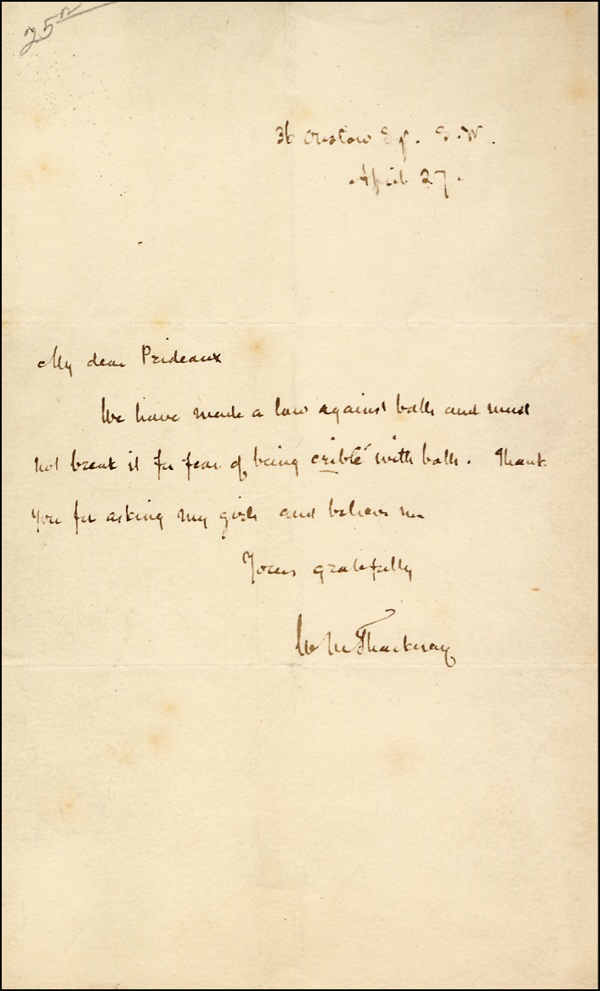 25
36 Onslow Sq. S.W.
April 27.
My dear Prideaux
We have made a law against balls and must
not break it for fear of being criblé with balls. Thank
you for asking my girls and believe me
Yours gratefully
W M Thackeray